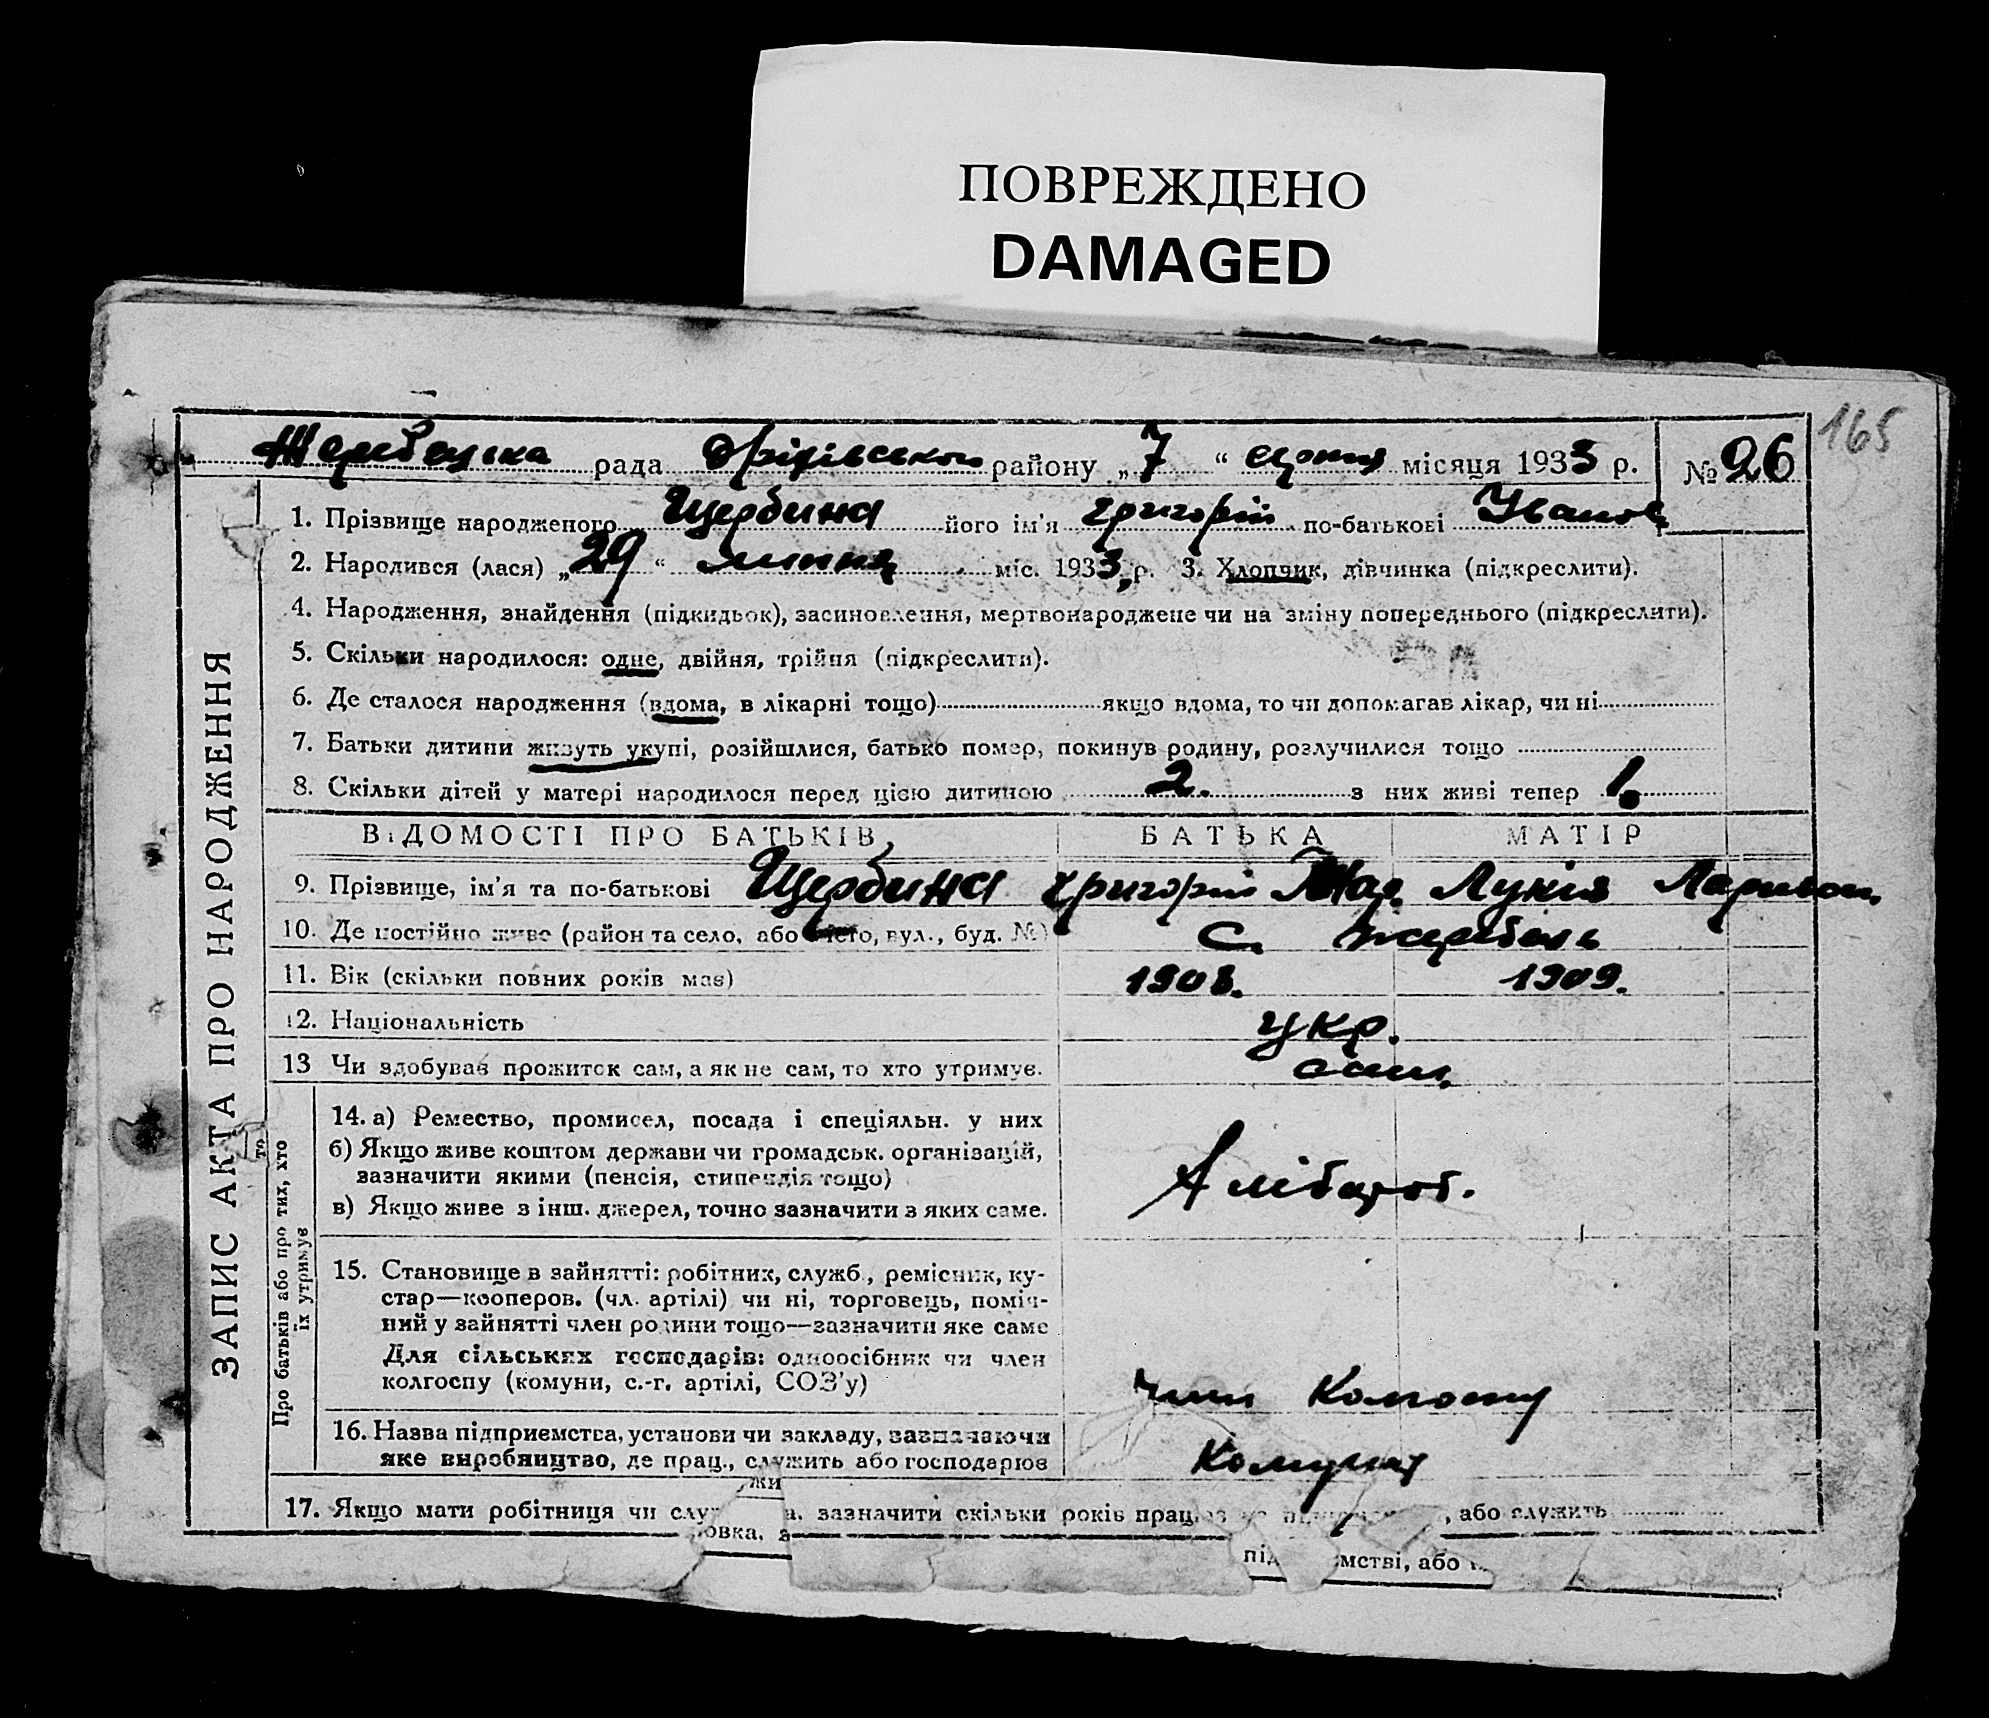 ПОВРЕЖДЕНО
DAMAGED
165
Жеребецька рада Оріхівського району „7“ серпня місяця 1933 р. № 26
1. Прізвище народженого Щербина його ім'я Григорій по-батькові Іванов
2. Народився (лася) „29“ липня міс. 1933 р. 3. Хлопчик, дівчинка (підкреслити).
4. Народження, знайдення (підкидьок), засиновлення, мертвонароджене чи на зміну попереднього (підкреслити).
5. Скільки народилося: одне, двійня, трійня (підкреслити).
6. Де сталося народження (вдома, в лікарні тощо) якщо вдома, то чи допомагав лікар, чи ні
7. Батьки дитини живуть укупі, розійшлися, батько помер, покинув родину, розлучилися тощо
8. Скільки дітей у матері народилося перед цією дитиною 2. з них живі тепер 1.
ВІДОМОСТІ ПРО БАТЬКІВ БАТЬКА МАТІР
9. Прізвище, ім'я та по-батькові Щербина Григорій Мак. Лукія Ларивон.
10. Де постійно живе (район та село, або місто, вул., буд. №) С. Жеребець
11. Вік (скільки повних років має) 1908. 1909.
12. Національність укр.
13 Чи здобував прожиток сам, а як не сам, то хто утримує. сам.
14. а) Ремество, промисел, посада і спеціяльн. у них
б) Якщо живе коштом держави чи громадськ. організацій,
зазначити якими (пенсія, стипендія тощо)
в) Якщо живе з інш. джерел, точно зазначити з яких саме.
Хлібороб.
15. Становище в зайнятті: робітник, служб., ремісник, ку-
стар—кооперов. (чл. артілі) чи ні, торговець, поміч-
ний у зайнятті член родини тощо—зазначити яке саме
Для сільських господарів: одноосібник чи член
колгоспу (комуни, с.-г. артілі, СОЗ'у) член
16. Назва підприємства, установи чи закладу, зазначаючи
яке виробництво, де прац., служить або господарює
17. Якщо мати робітниця чи слу а, зазначити скільки років працює на , або служить
овка, з
під мстві, або
ЗАПИС АКТА ПРО НАРОДЖЕННЯ
Про батьків або про тих, хто
їх утримує